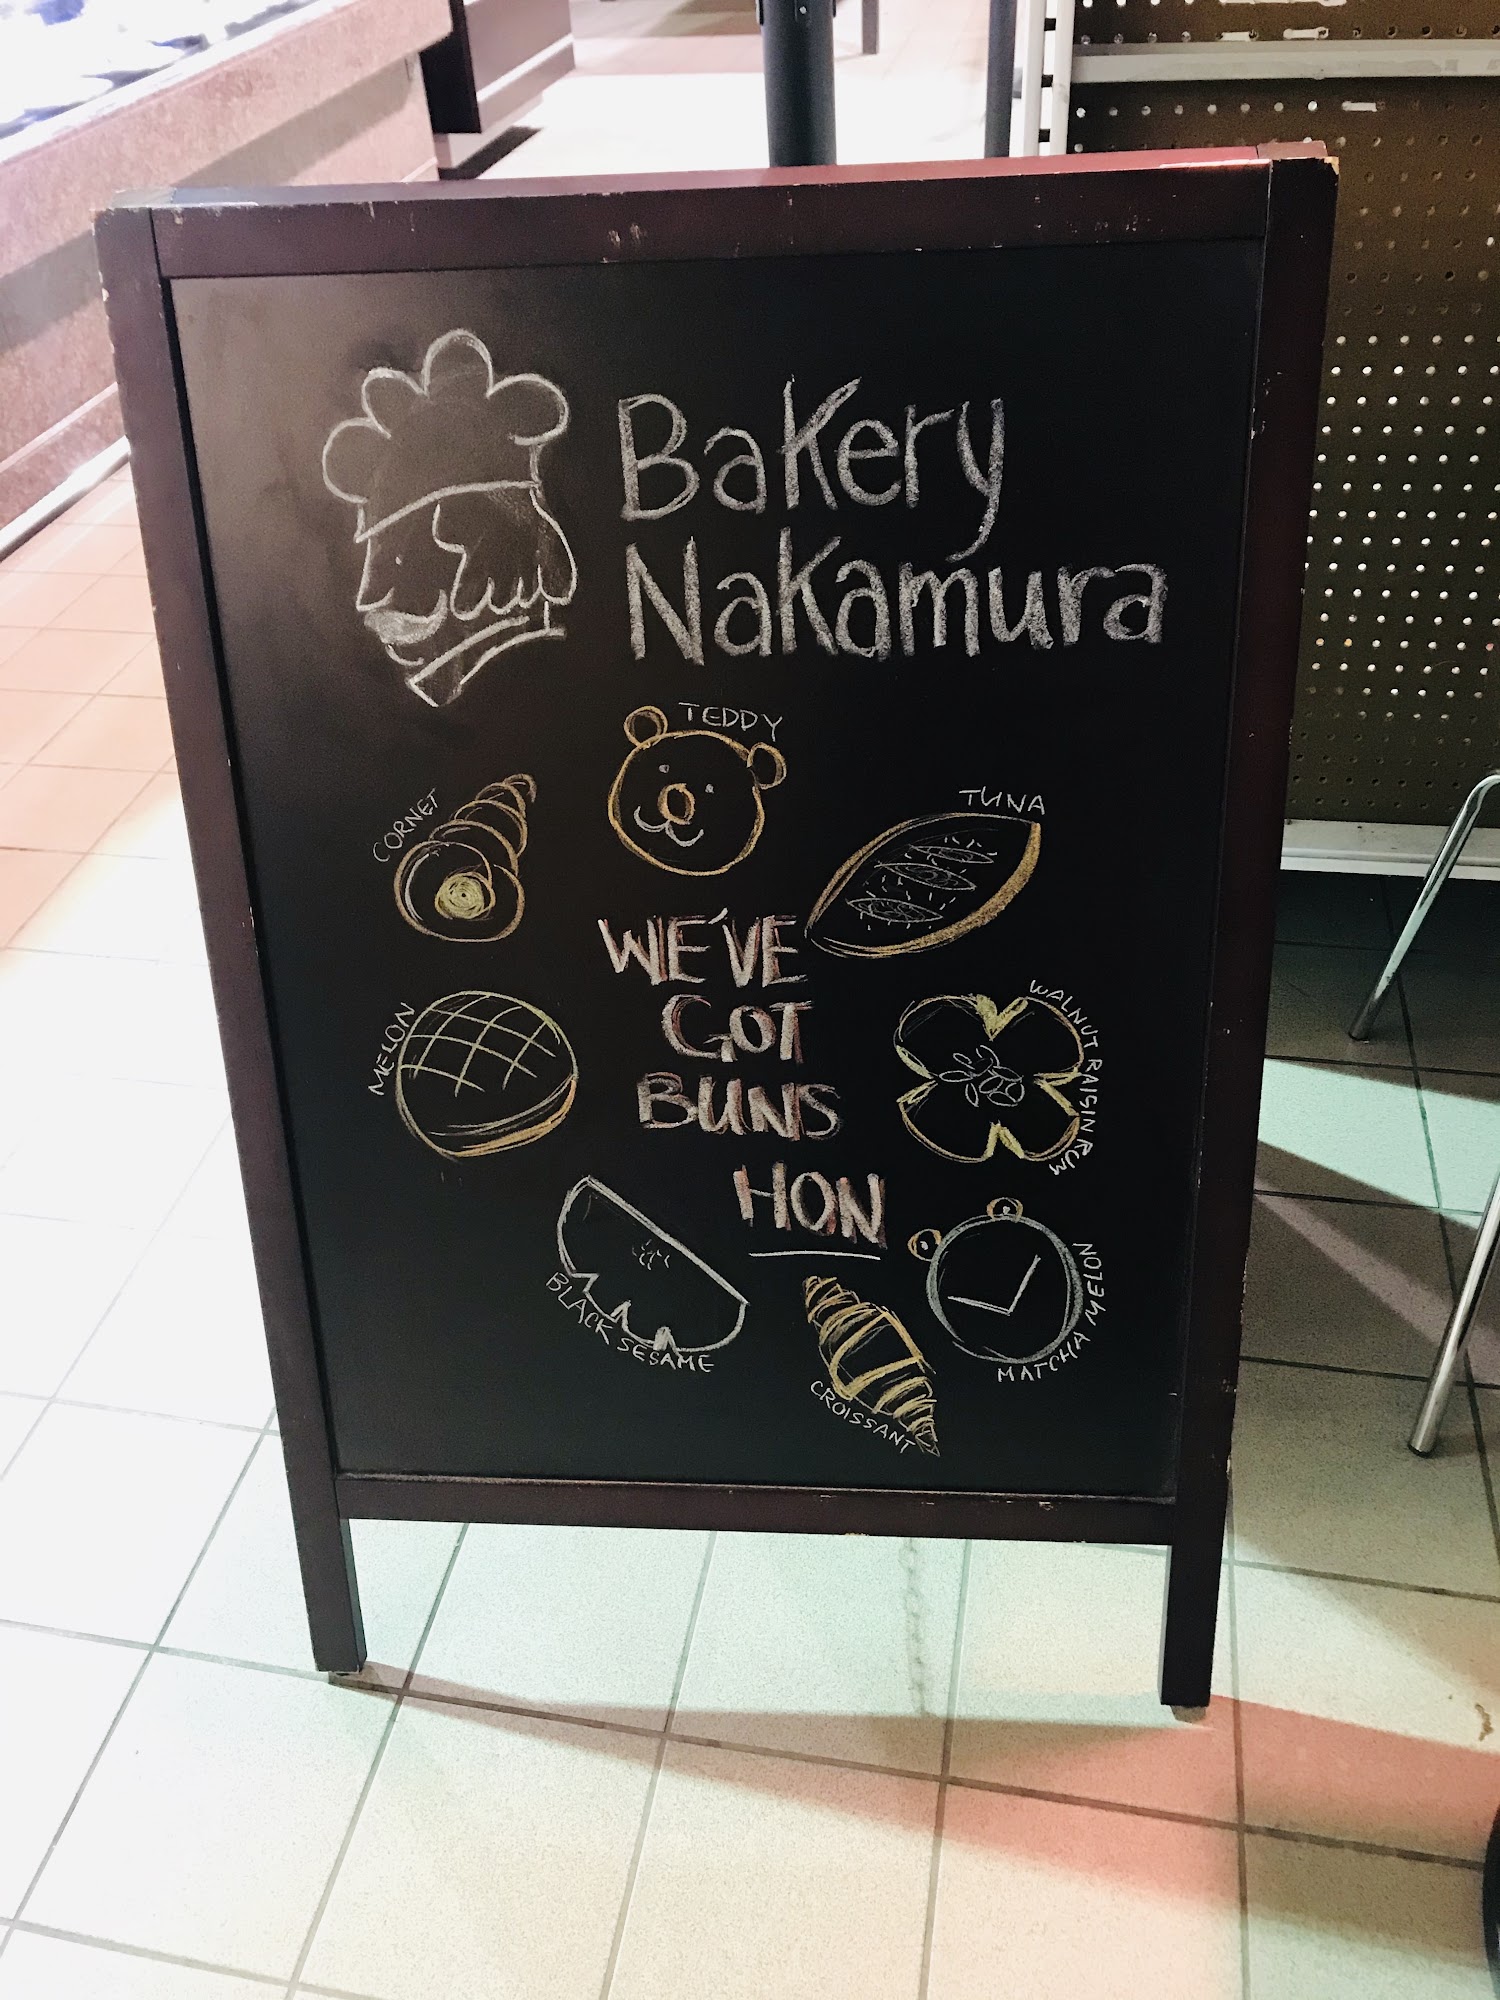 Bakery
Nakamura
TEDDY
CORNET
TUNA
WE'VE
GOT
BUNS
HON
MELON
WALNUT RAISIN RUM
BLACK SESAME
CROISSANT
MATCHA MELON